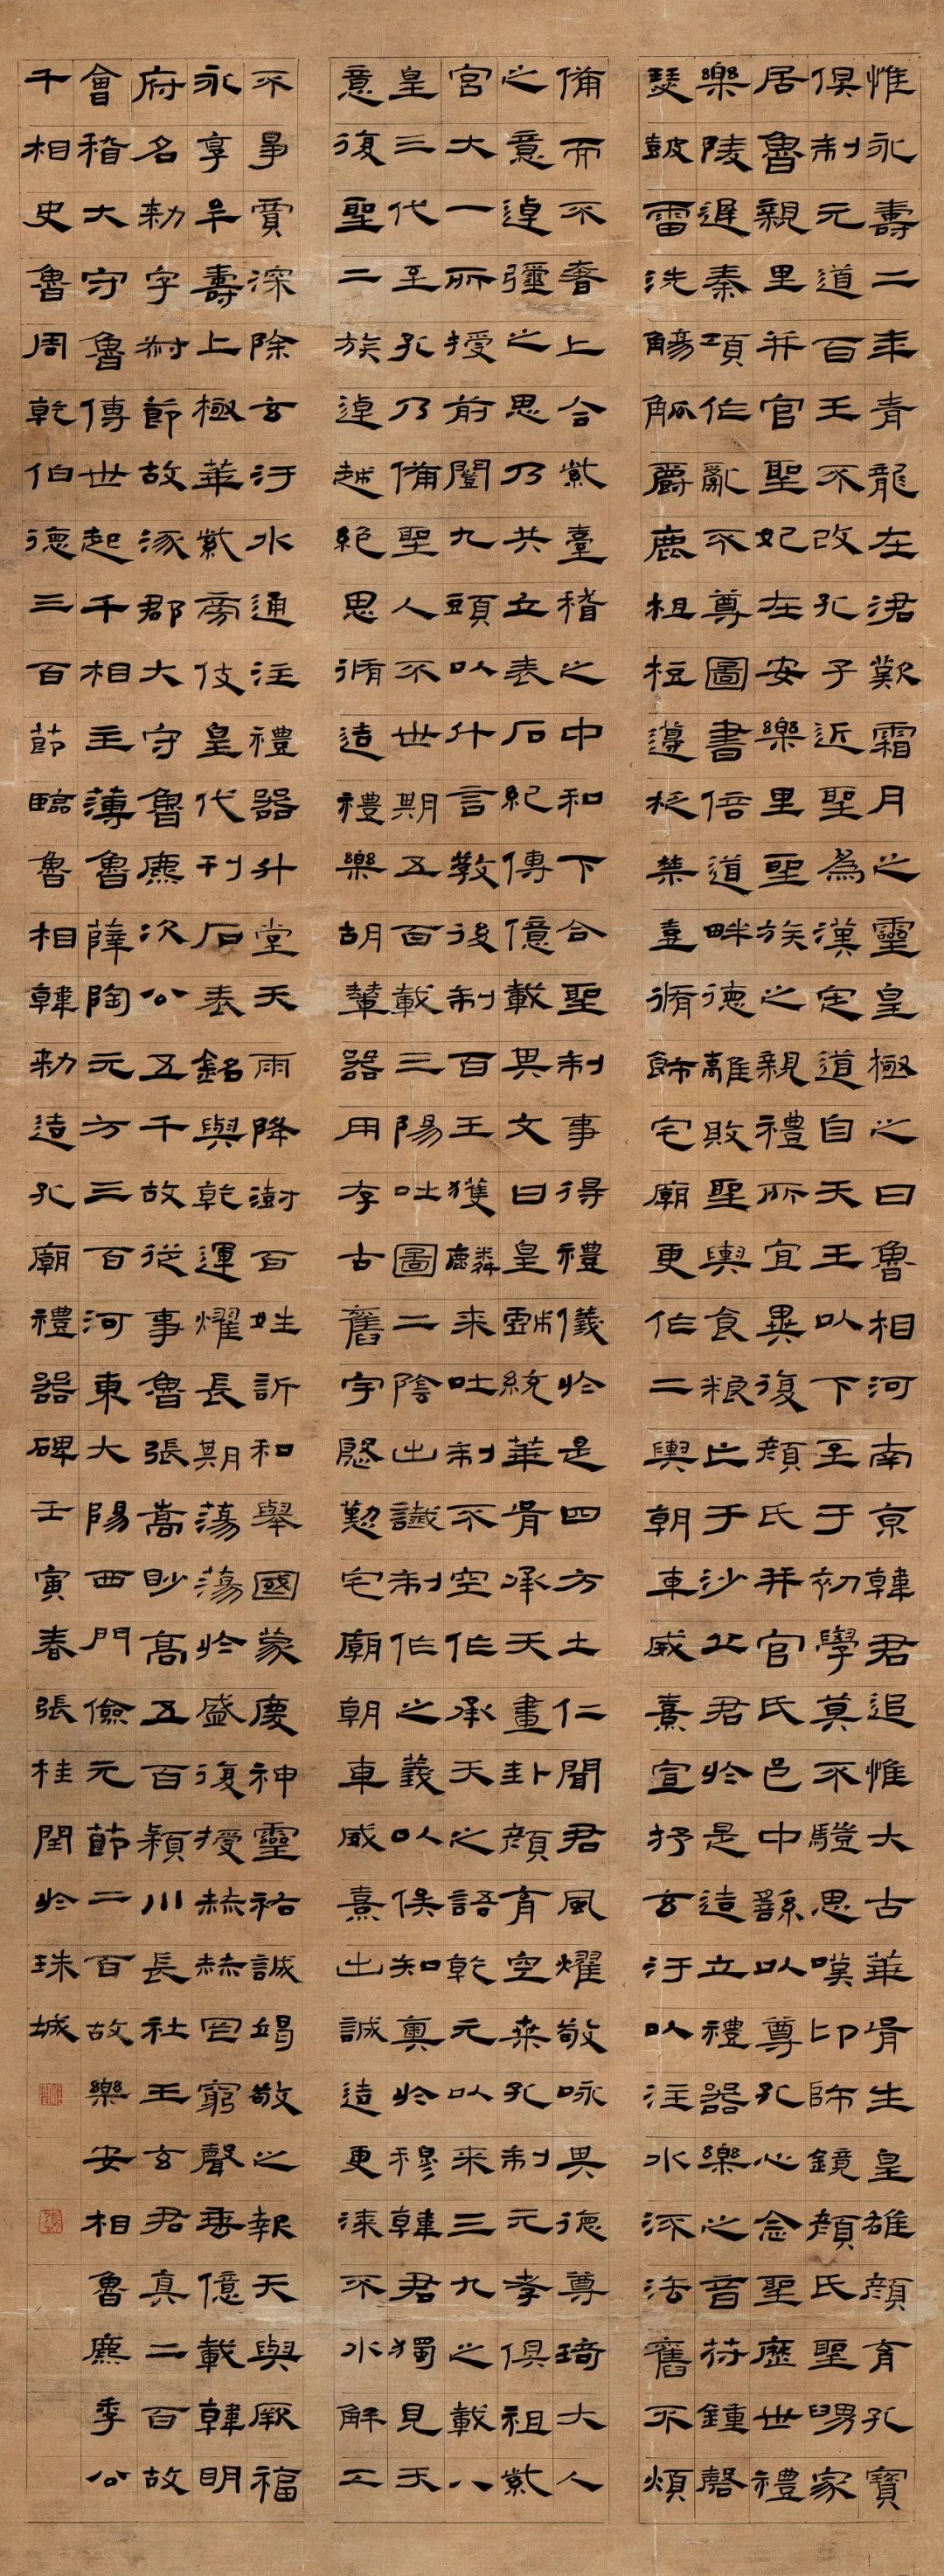 惟永壽二年青龍在涒歎霜月之靈皇極之日魯相河南京韓君追惟大古華胥生皇雄顏育孔寶
俱制元道百王不改孔子近聖為漢定道自天王以下至于初學莫不驥思嘆卬師鏡顏氏聖舅家
居魯親里并官聖妃在安樂里聖族之親禮所宜異復顏氏并官氏邑中繇以尊孔心念聖歷世禮
樂陵遲秦項作亂不尊圖書倍道畔德離敗聖輿食粮亡于沙丘君於是造立禮器樂之音苻鍾磬
瑟鼓雷洗觴觚爵鹿柤梪籩柉禁壺脩飾宅廟更作二輿朝車威熹宣抒玄汙以注水流法舊不煩
備而不奢上合紫臺稽之中和下合聖制事得禮儀於是四方土仁聞君風燿敬咏其德尊琦大人
之意逴彌之思乃共立表石紀傳億載其文曰皇戲統華胥承天畫卦顏育空桑孔制元孝俱祖紫
宮大一所授前闓九頭以什言教後制百王獲麟來吐制不空作承天之語乾元以來三九之載八
皇三代至孔乃備聖人不世期五百載三陽吐圖二陰出讖制作之義以俟知奧於穆韓君獨見天
意復聖二族逴越絕思脩造禮樂胡輦器用存古舊宇慇懃宅廟朝車威熹出誠造更漆不水解工
不爭賈深除玄汙水通注禮器升堂天雨降澍百姓訢和舉國蒙慶神靈祐誠竭敬之報天與厥福
永享牟壽上極華紫旁伎皇代刊石表銘與乾運燿長期蕩蕩於盛復授赫赫罔窮聲垂億載韓明
府名勑字叔節故涿郡大守魯麃次公五千故從事魯張嵩眇高五百潁川長社王玄君真二百故
會稽大守魯傅世起千相主薄魯薛陶元方三百河東大陽西門儉元節二百故樂安相魯麃季公
千相史魯周乾伯德三百節臨魯相韓勑造孔廟禮器碑壬寅春張桂閏於珠城